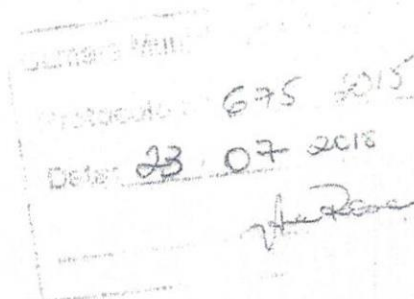 Câmara Muni
Protocolo 675 2015
Data: 23 07 2015